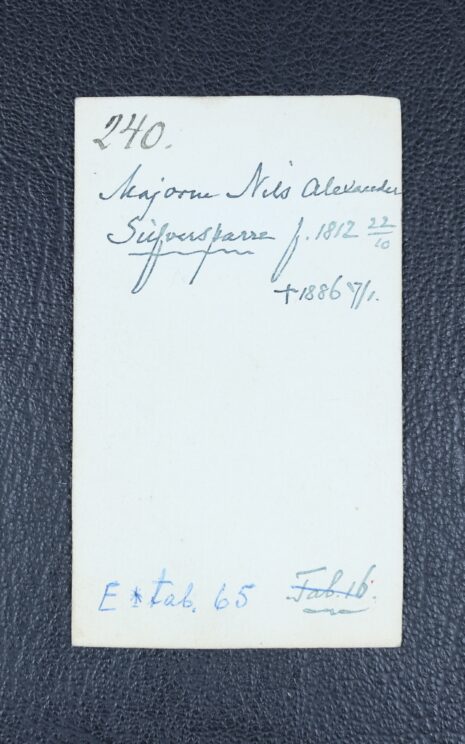 240.
Majoren Nils Alexander
Silfversparre f. 1812 22/10
+ 1886 7/1.
E tab. 65 Tab. 16.